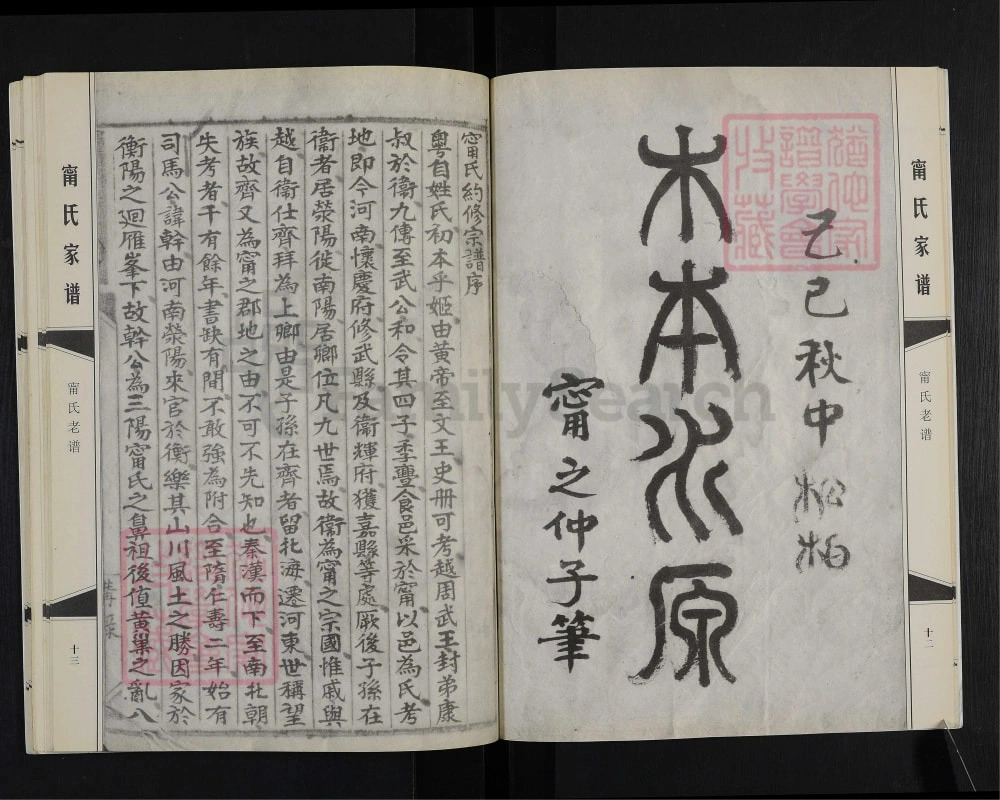 甯氏家谱
甯氏老谱
十二
己巳秋中 松柏
木本水原
甯之仲子筆
甯氏約修宗譜序
粵自姓氏初本乎姬由黃帝至文王史册可考越周武王封弟康
叔於衛九傳至武公和令其四子季亹食邑采於甯以邑為氏考
地即今河南懷慶府修武縣及衛輝府獲嘉縣等處厥後子孫在
衛者居滎陽徙南陽居鄉位凡九世焉故衛為甯之宗國惟戚與
越自衛仕齊拜為上卿由是子孫在齊者留北海遷河東世稱望
族故齊又為甯之郡地之由不可不先知也秦漢而下至南北朝
失考者千有餘年書缺有間不敢強為附合至隋仁壽二年始有
司馬公諱幹由河南滎陽來官於衡樂其山川風土之勝因家於
衡陽之廻雁峯下故幹公為三陽甯氏之鼻祖後值黃巢之亂八
甯氏家谱
甯氏老谱
十三
FamilySearch